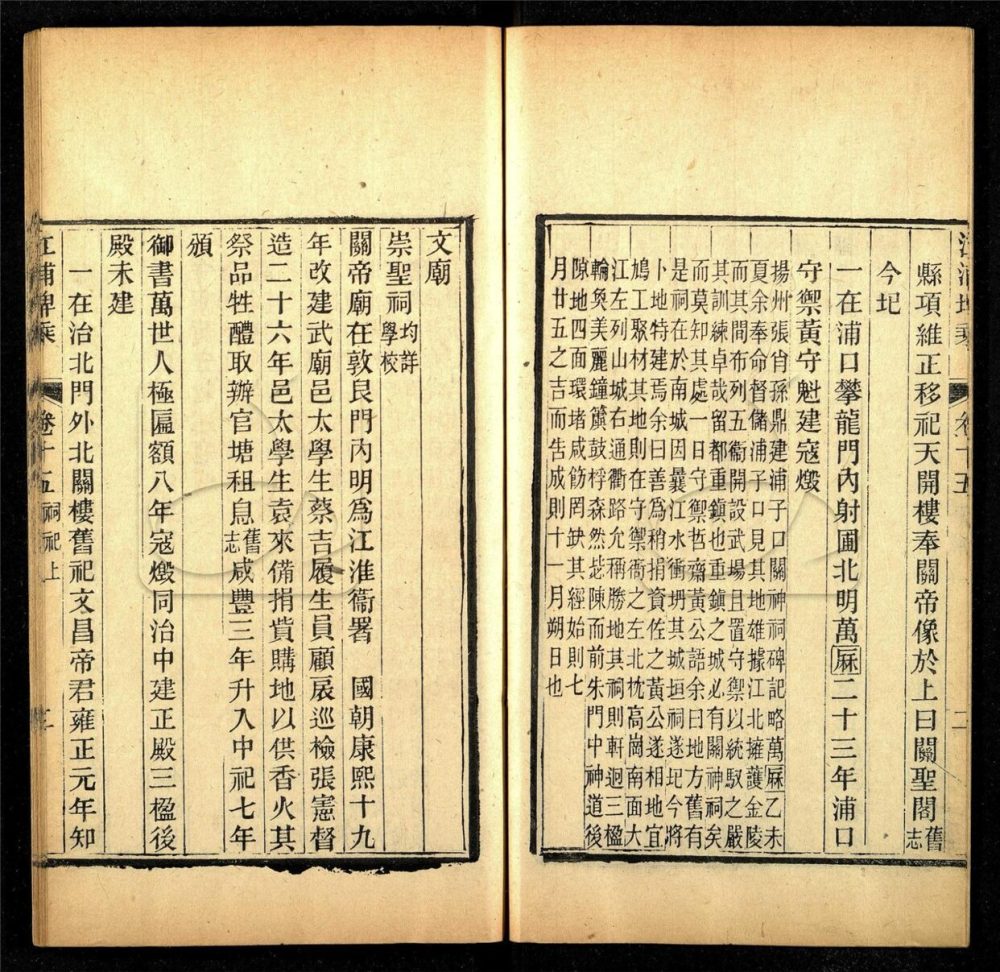 江浦埤乘 卷十五 二
縣項維正移祀天開樓奉關帝像於上曰關聖閣舊志
今圮
一在浦口攀龍門內射圃北明萬厤二十三年浦口
守禦黃守魁建寇燬
揚州張肖孫鼎建浦子口關神祠碑記略萬厤乙未
夏余奉命督儲浦子口見其地雄據江北擁護金陵
而其間布列五衞開設武場且置守禦以統馭之嚴
其訓練卓哉留都重鎮也重鎮之城必有關神祠矣
而莫知其處一日守禦哲齋黃公語余曰地方舊有
是祠在於南城因曩江水衝坍其城垣祠遂圮今將
卜地特建焉余曰善爲稍捐資佐之黃公遂相地宜
鳩工聚材其地則在守禦衙之左北枕高崗南面大
江左列山城右通衢路允稱勝地其祠則軒迥三楹
輪奐美麗鐘簴鼓桴森然陳而前朱門中神道後
隙地四面環堵咸飭罔缺其經始則七
月廿五之吉而告成則十一月朔日也
文廟
崇聖祠均詳學校
關帝廟在敦良門內明爲江淮衞署 國朝康熙十九
年改建武廟邑太學生蔡吉履生員顧扆巡檢張憲督
造二十六年邑太學生袁來備捐貲購地以供香火其
祭品牲醴取辦官塘租息舊志咸豐三年升入中祀七年
頒
御書萬世人極匾額八年寇燬同治中建正殿三楹後
殿未建
一在治北門外北關樓舊祀文昌帝君雍正元年知
江浦埤乘 卷十五 祠祀上 二